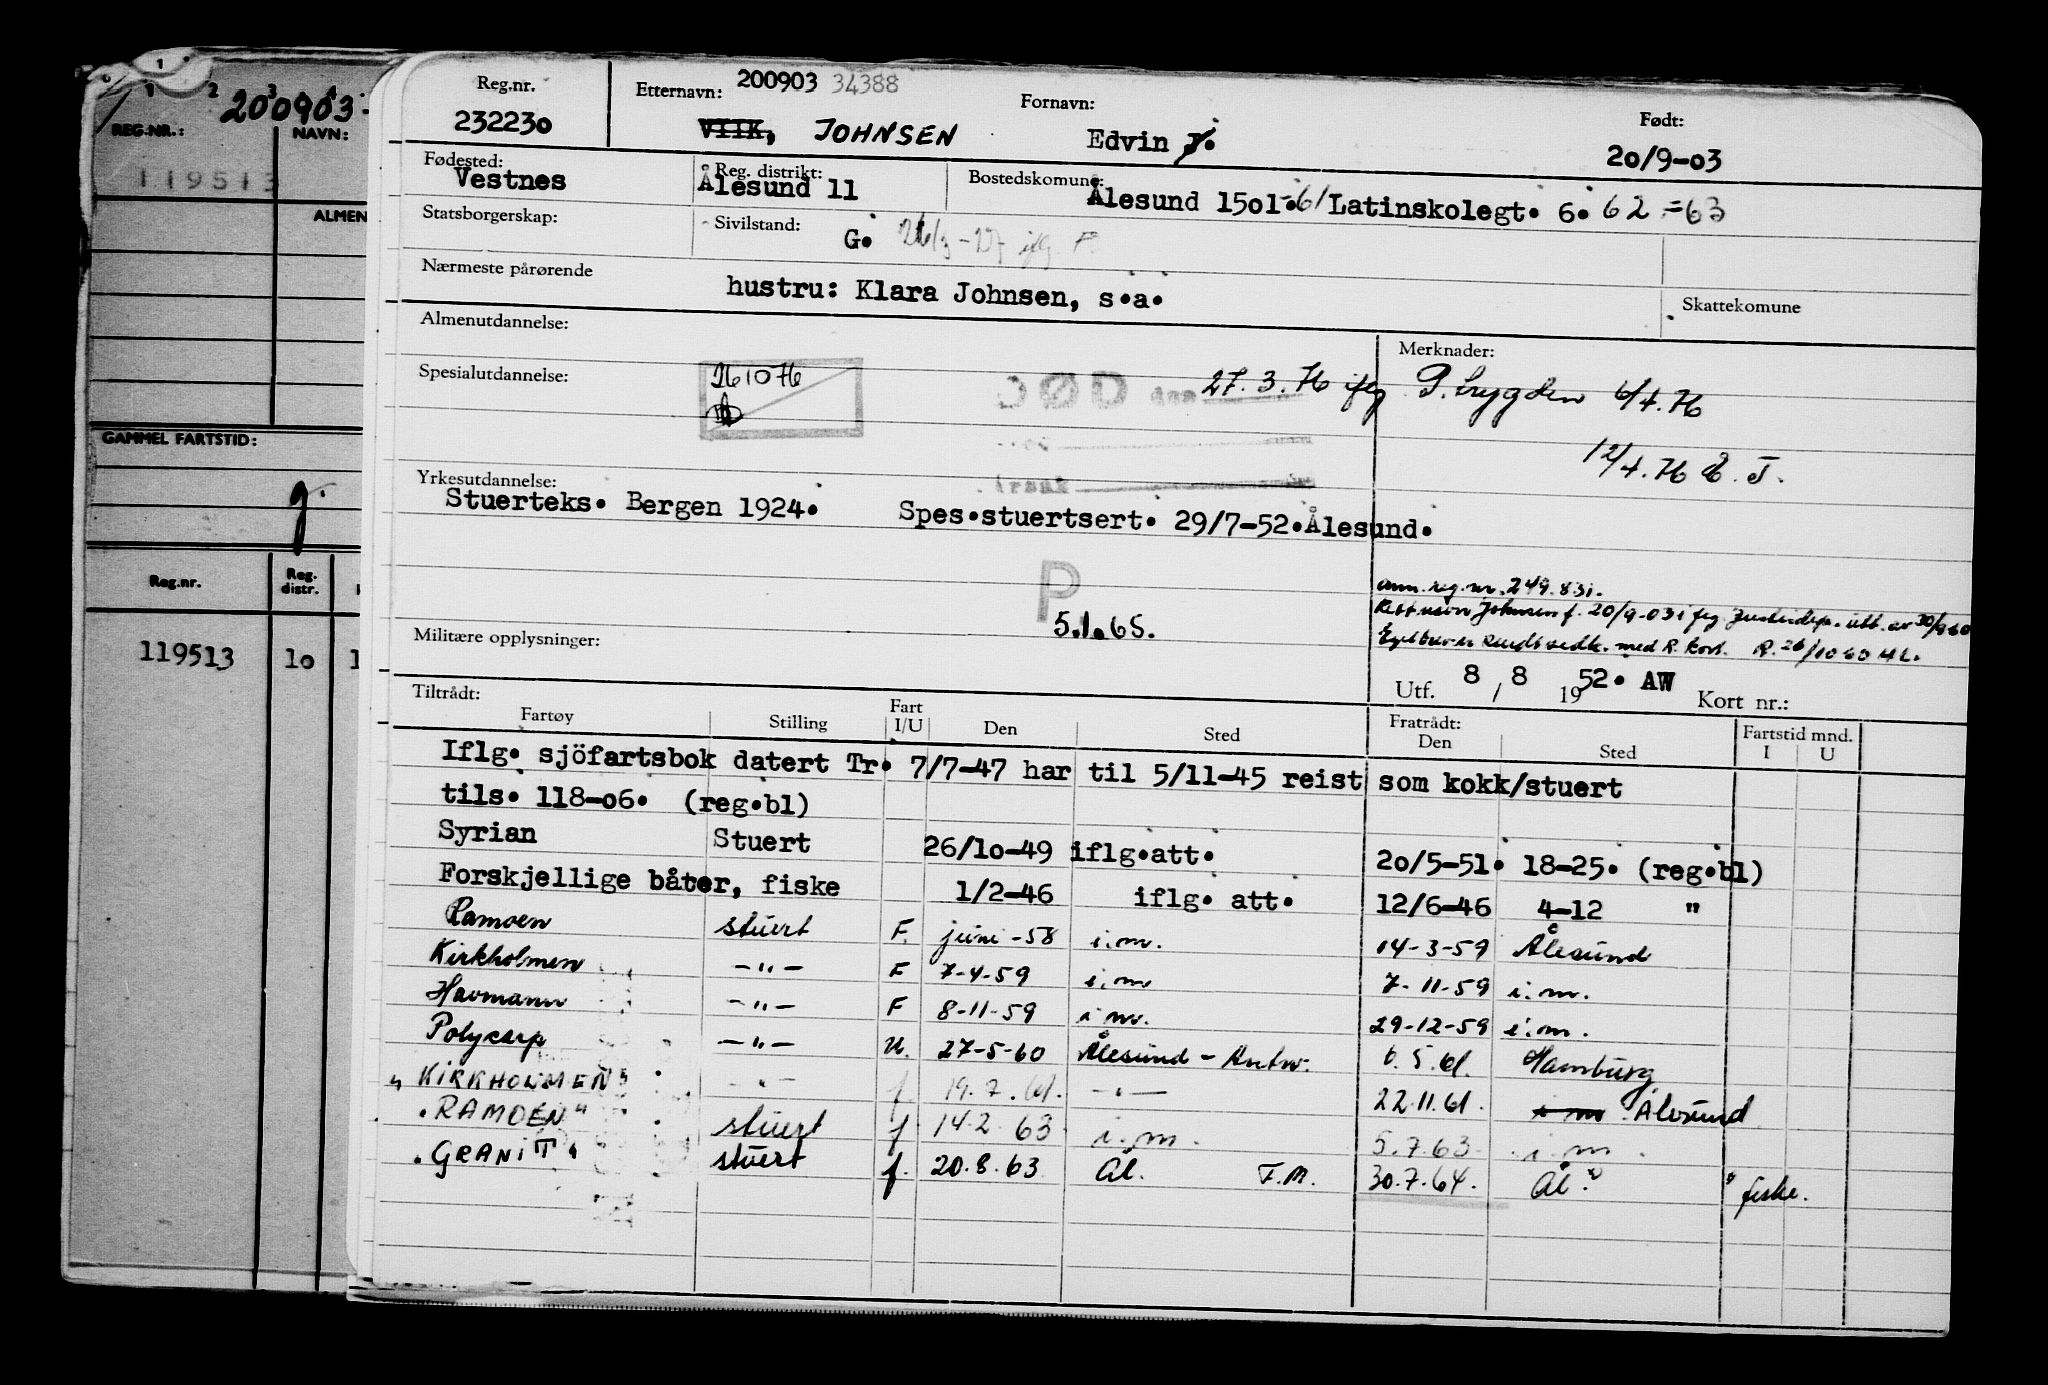 1 2 3
200903-
REG.NR.: NAVN:
119513
ALMEN
GAMMEL FARTSTID:
g.
Reg.nr. Reg. distr.
119513 1o 1
Reg.nr. Etternavn: 200903 34388 Fornavn: Født:
232230 VIIK, JOHNSEN Edvin J. 20/9-03
Fødested: Reg. distrikt: Bostedskomune:
Vestnes Ålesund 11 Ålesund 15o1.-61 Latinskolegt. 6. 62 =63
Statsborgerskap: Sivilstand: G.
Nærmeste pårørende
hustru: Klara Johnsen, s.a.
Skattekomune
Almenutdannelse:
Merknader:
Spesialutdannelse: 261076 DØD den 27.3.76 ifg P. trygden 6/4.76
12/4.76 E.T.
Årsak
Yrkesutdannelse:
Stuerteks. Bergen 1924. Spes.stuertsert. 29/7-52.Ålesund.
P
5.1.65.
ann. reg. nr. 249.831.
Rett navn Johnsen f. 20/9-03 ifg. Justisdep. utt. av 30/9 60
med R. kort. R. 26/10 60 HL.
Militære opplysninger:
Utf. 8 / 8 1952. AW Kort nr.:
Tiltrådt: Fratrådt:
Fartøy Stilling Fart I/U Den Sted Den Sted Fartstid mnd. I U
Iflg. sjöfartsbok datert Tr. 7/7-47 har til 5/11-45 reist som kokk/stuert
tils. 118-o6. (reg.bl)
Syrian Stuert 26/1o-49 iflg.att. 2o/5-51. 18-25. (reg.bl)
Forskjellige båter, fiske 1/2-46 iflg. att. 12/6-46 4-12 "
Ramoen stuert F. juni -58 i.m. 14-3-59 Ålesund
Kirkholmen -"- F 7-4-59 i.m 7-11-59 i.m.
Havmann -"- F 8-11-59 i m. 29-12-59 i.m.
Polycarp -"- U. 27-5-60 Ålesund - Antw. 6.5.61. Hamburg
"KIRKHOLMEN" -"- f 19.7.61. -"- 22.11.61. i m Ålesund
"RAMOEN" stuert f 14.2.63 i.m. 5.7.63 i m.
"GRANITT" stuert f. 20.8.63 Ål. F.M. 30.7.64. Ål. " fiske.